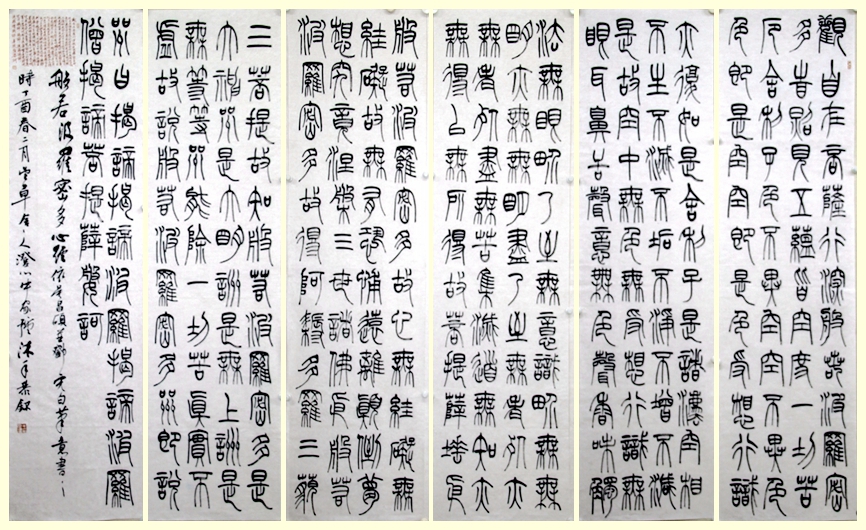 觀自在菩薩行深般若波羅蜜
多時照見五蘊皆空度一切苦
厄舍利子色不異空空不異色
色即是空空即是色受想行識
亦復如是舍利子是諸法空相
不生不滅不垢不淨不增不減
是故空中無色無受想行識無
眼耳鼻舌身意無色聲香味觸
法無眼界乃至無意識界無無
明亦無無明盡乃至無老死亦
無老死盡無苦集滅道無智亦
無得以無所得故菩提薩埵依
般若波羅蜜多故心無罣礙無
罣礙故無有恐怖遠離顛倒夢
想究竟涅槃三世諸佛依般若
波羅蜜多故得阿耨多羅三藐
三菩提故知般若波羅蜜多是
大神咒是大明咒是無上咒是
無等等咒能除一切苦真實不
虛故說般若波羅蜜多咒即說
咒曰揭諦揭諦波羅揭諦波羅
僧揭諦菩提薩婆訶
般若波羅蜜多心經依吳昌碩筆意書
時丁酉春二月沐手恭錄